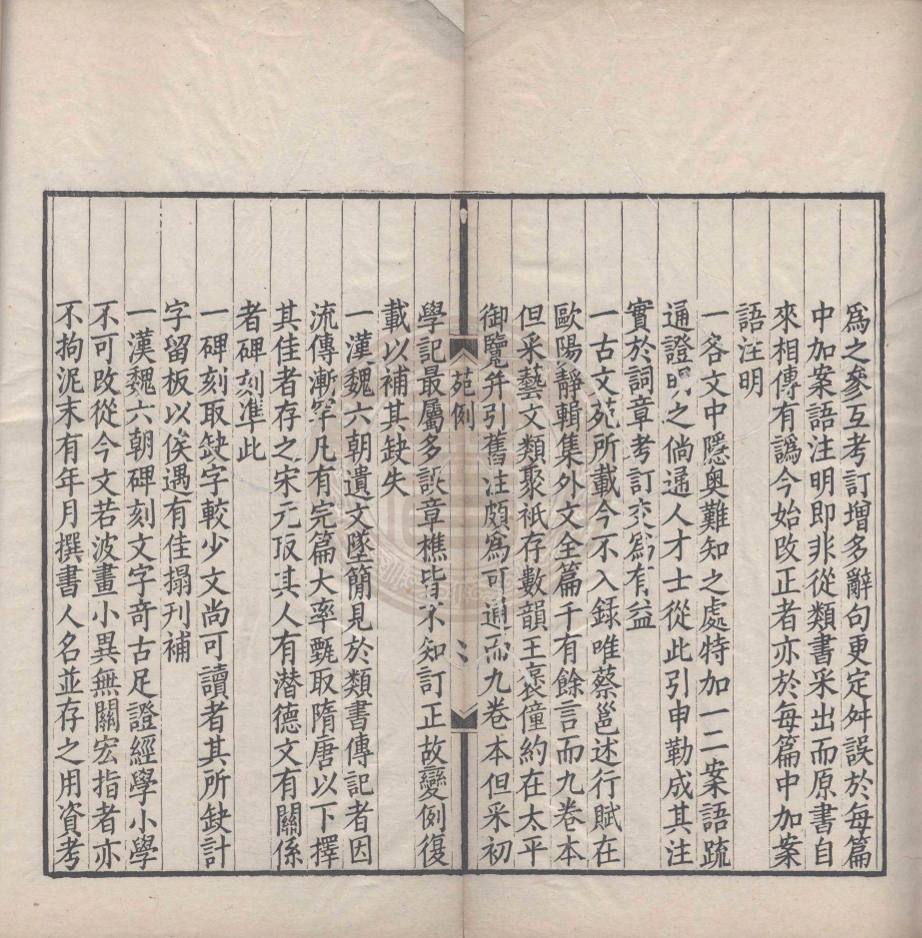 爲之參互考訂增多辭句更定舛誤於每篇
中加案語注明卽非從類書采出而原書自
來相傳有譌今始改正者亦於每篇中加案
語注明
一各文中隱奧難知之處特加一二案語疏
通證明之倘遞人才士從此引申勒成其注
實於詞章考訂交爲有益
一古文苑所載今不入錄唯蔡邕述行賦在
歐陽靜輯集外文全篇千有餘言而九卷本
但采藝文類聚祇存數韻王襃僮約在太平
御覽幷引舊注頗爲可通而九卷本但采初
苑例
二
學記最屬多誤章樵皆不知訂正故變例復
載以補其缺失
一漢魏六朝遺文墜簡見於類書傳記者因
流傳漸罕凡有完篇大率甄取隋唐以下擇
其佳者存之宋元取其人有潛德文有關係
者碑刻準此
一碑刻取缺字較少文尚可讀者其所缺計
字留板以俟遇有佳搨刊補
一漢魏六朝碑刻文字奇古足證經學小學
不可改從今文若波畫小異無關宏指者亦
不拘泥末有年月撰書人名並存之用資考